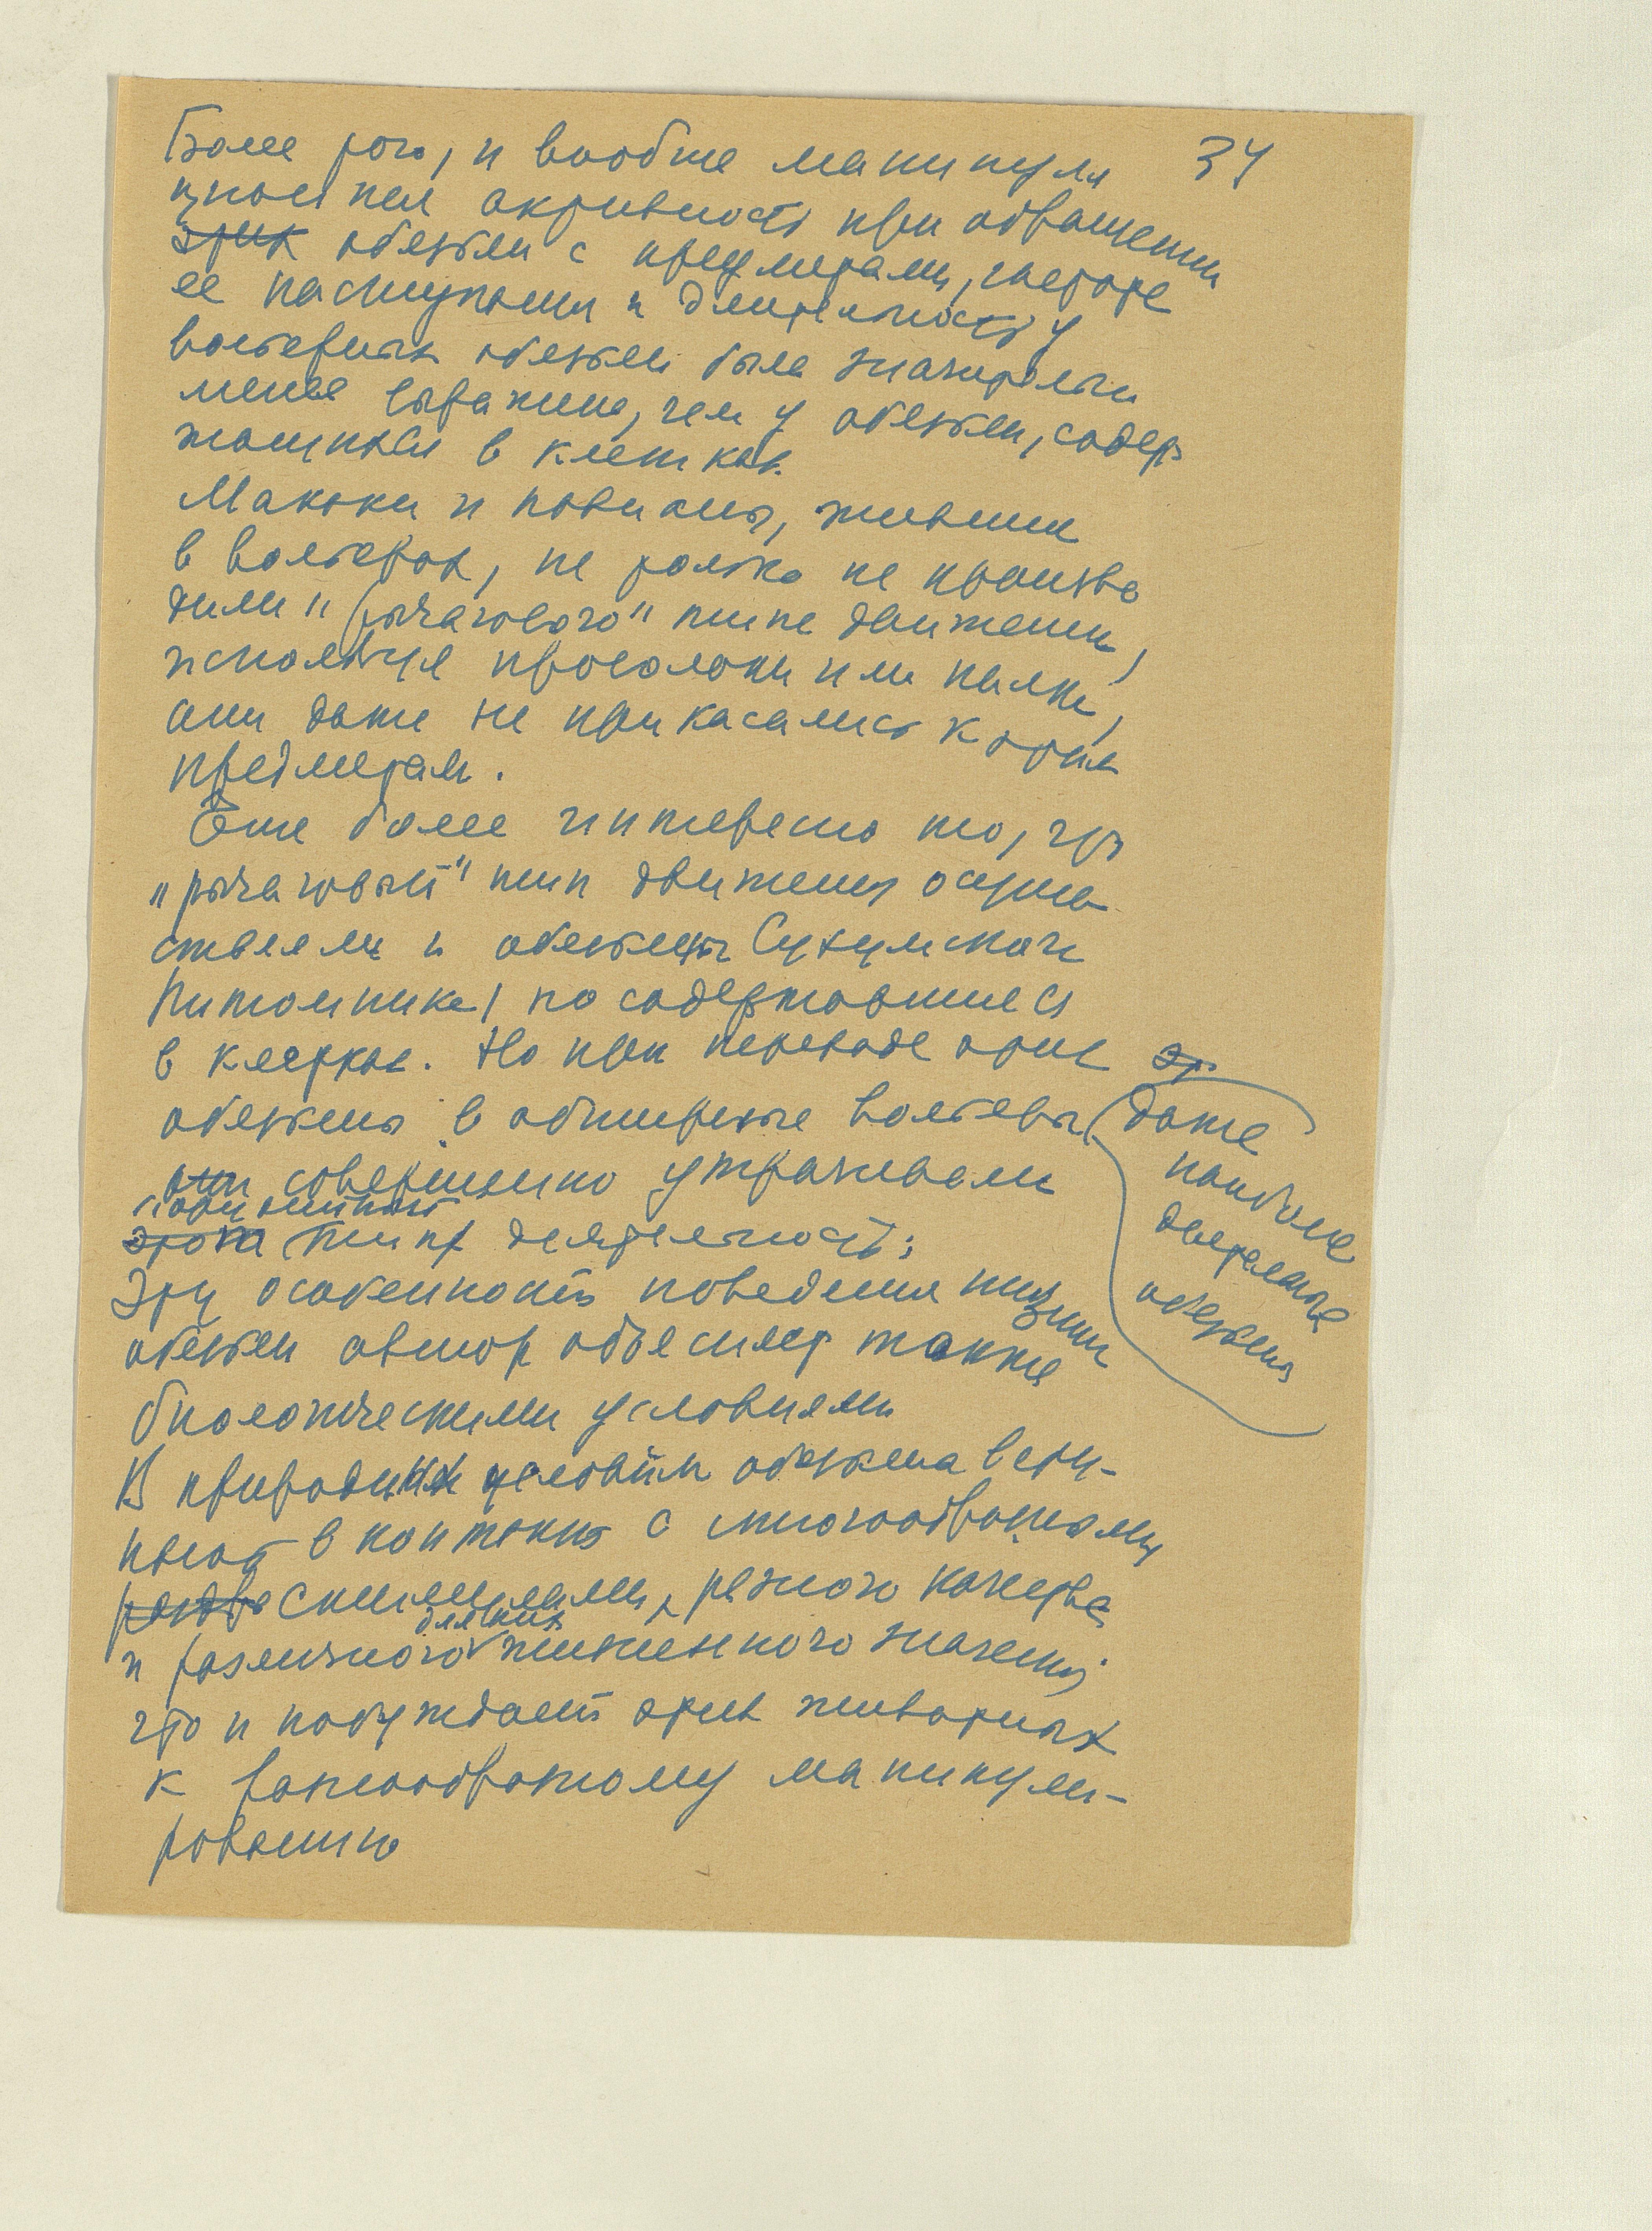 34
Более того, и вообще манипуля
ционная активность при обращении
этих обезьян с предметами, быстрота
ее наступания и длительность у
вольерных обезьян была значительно
менее выражена, чем у обезьян, содер
жащихся в клетках.
Макаки и павианы, жившие
в вольерах, не только не произво
дили "рычагового" типа движения,
используя проволоки или палки,
они даже не прикасались к этим
предметам.
Еще более интересно то, что
"рычаговый" тип движения осуще
ствляли и обезьяны Сухумского
питомника, но содержавшиеся
в клетках. Но при переводе этих эт
обезьян в обширные вольеры даже
наиболее
деятельные
обезьяны
они совершенно утрачивали
этого типа деятельность;
Эту особенность поведения низших
обезьян автор объясняет также
биологическими условиями
В природных условиях обезьяна всту-
пает в контакт с многообразными
стимулами, разного качества
и различного для них жизненного значения,
что и побуждает этих животных
к разнообразному манипули-
рованию